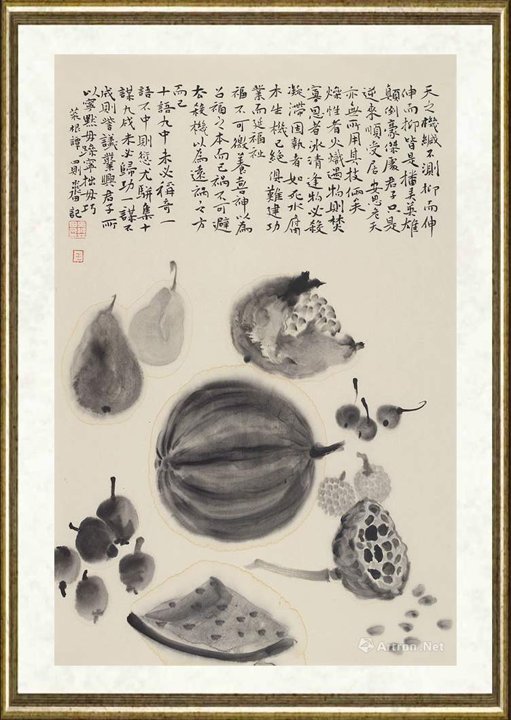 天之機緘不測抑而伸
伸而抑皆是播弄英雄
顛倒豪傑處君子只是
逆來順受居安思危天
亦無所用其技倆矣
燥性者火熾遇物則焚
寡恩者冰清逢物必殺
凝滯固執者如死水腐
木生機已絕俱難建功
業而延福祉
福不可徼養喜神以為
召福之本而已禍不可避
去殺機以為遠禍々方
而已
十語九中未必稱奇一
語不中則愆尤駢集十
謀九成未必歸功一謀不
成則訾議叢興君子所
以寧默毋躁寧拙毋巧
菜根譚四則 記
Artron.Net